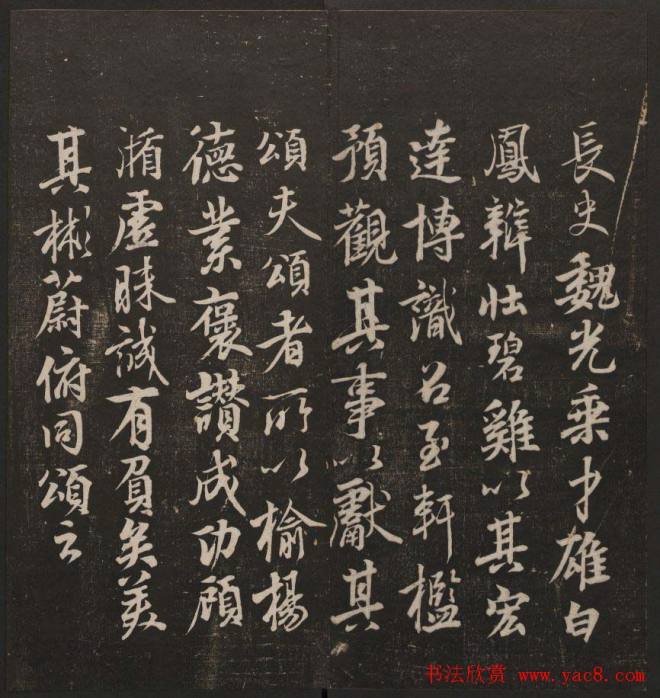 長史魏光乗才雄白
鳳辯壯碧雞以其宏
達博識召至軒檻
預觀其事以獻其
頌夫頌者所以榆揚
德業褒讚成功顧
循虛昧誠有負矣美
其彬蔚俯同頌云
书法欣赏 www.yac8.com